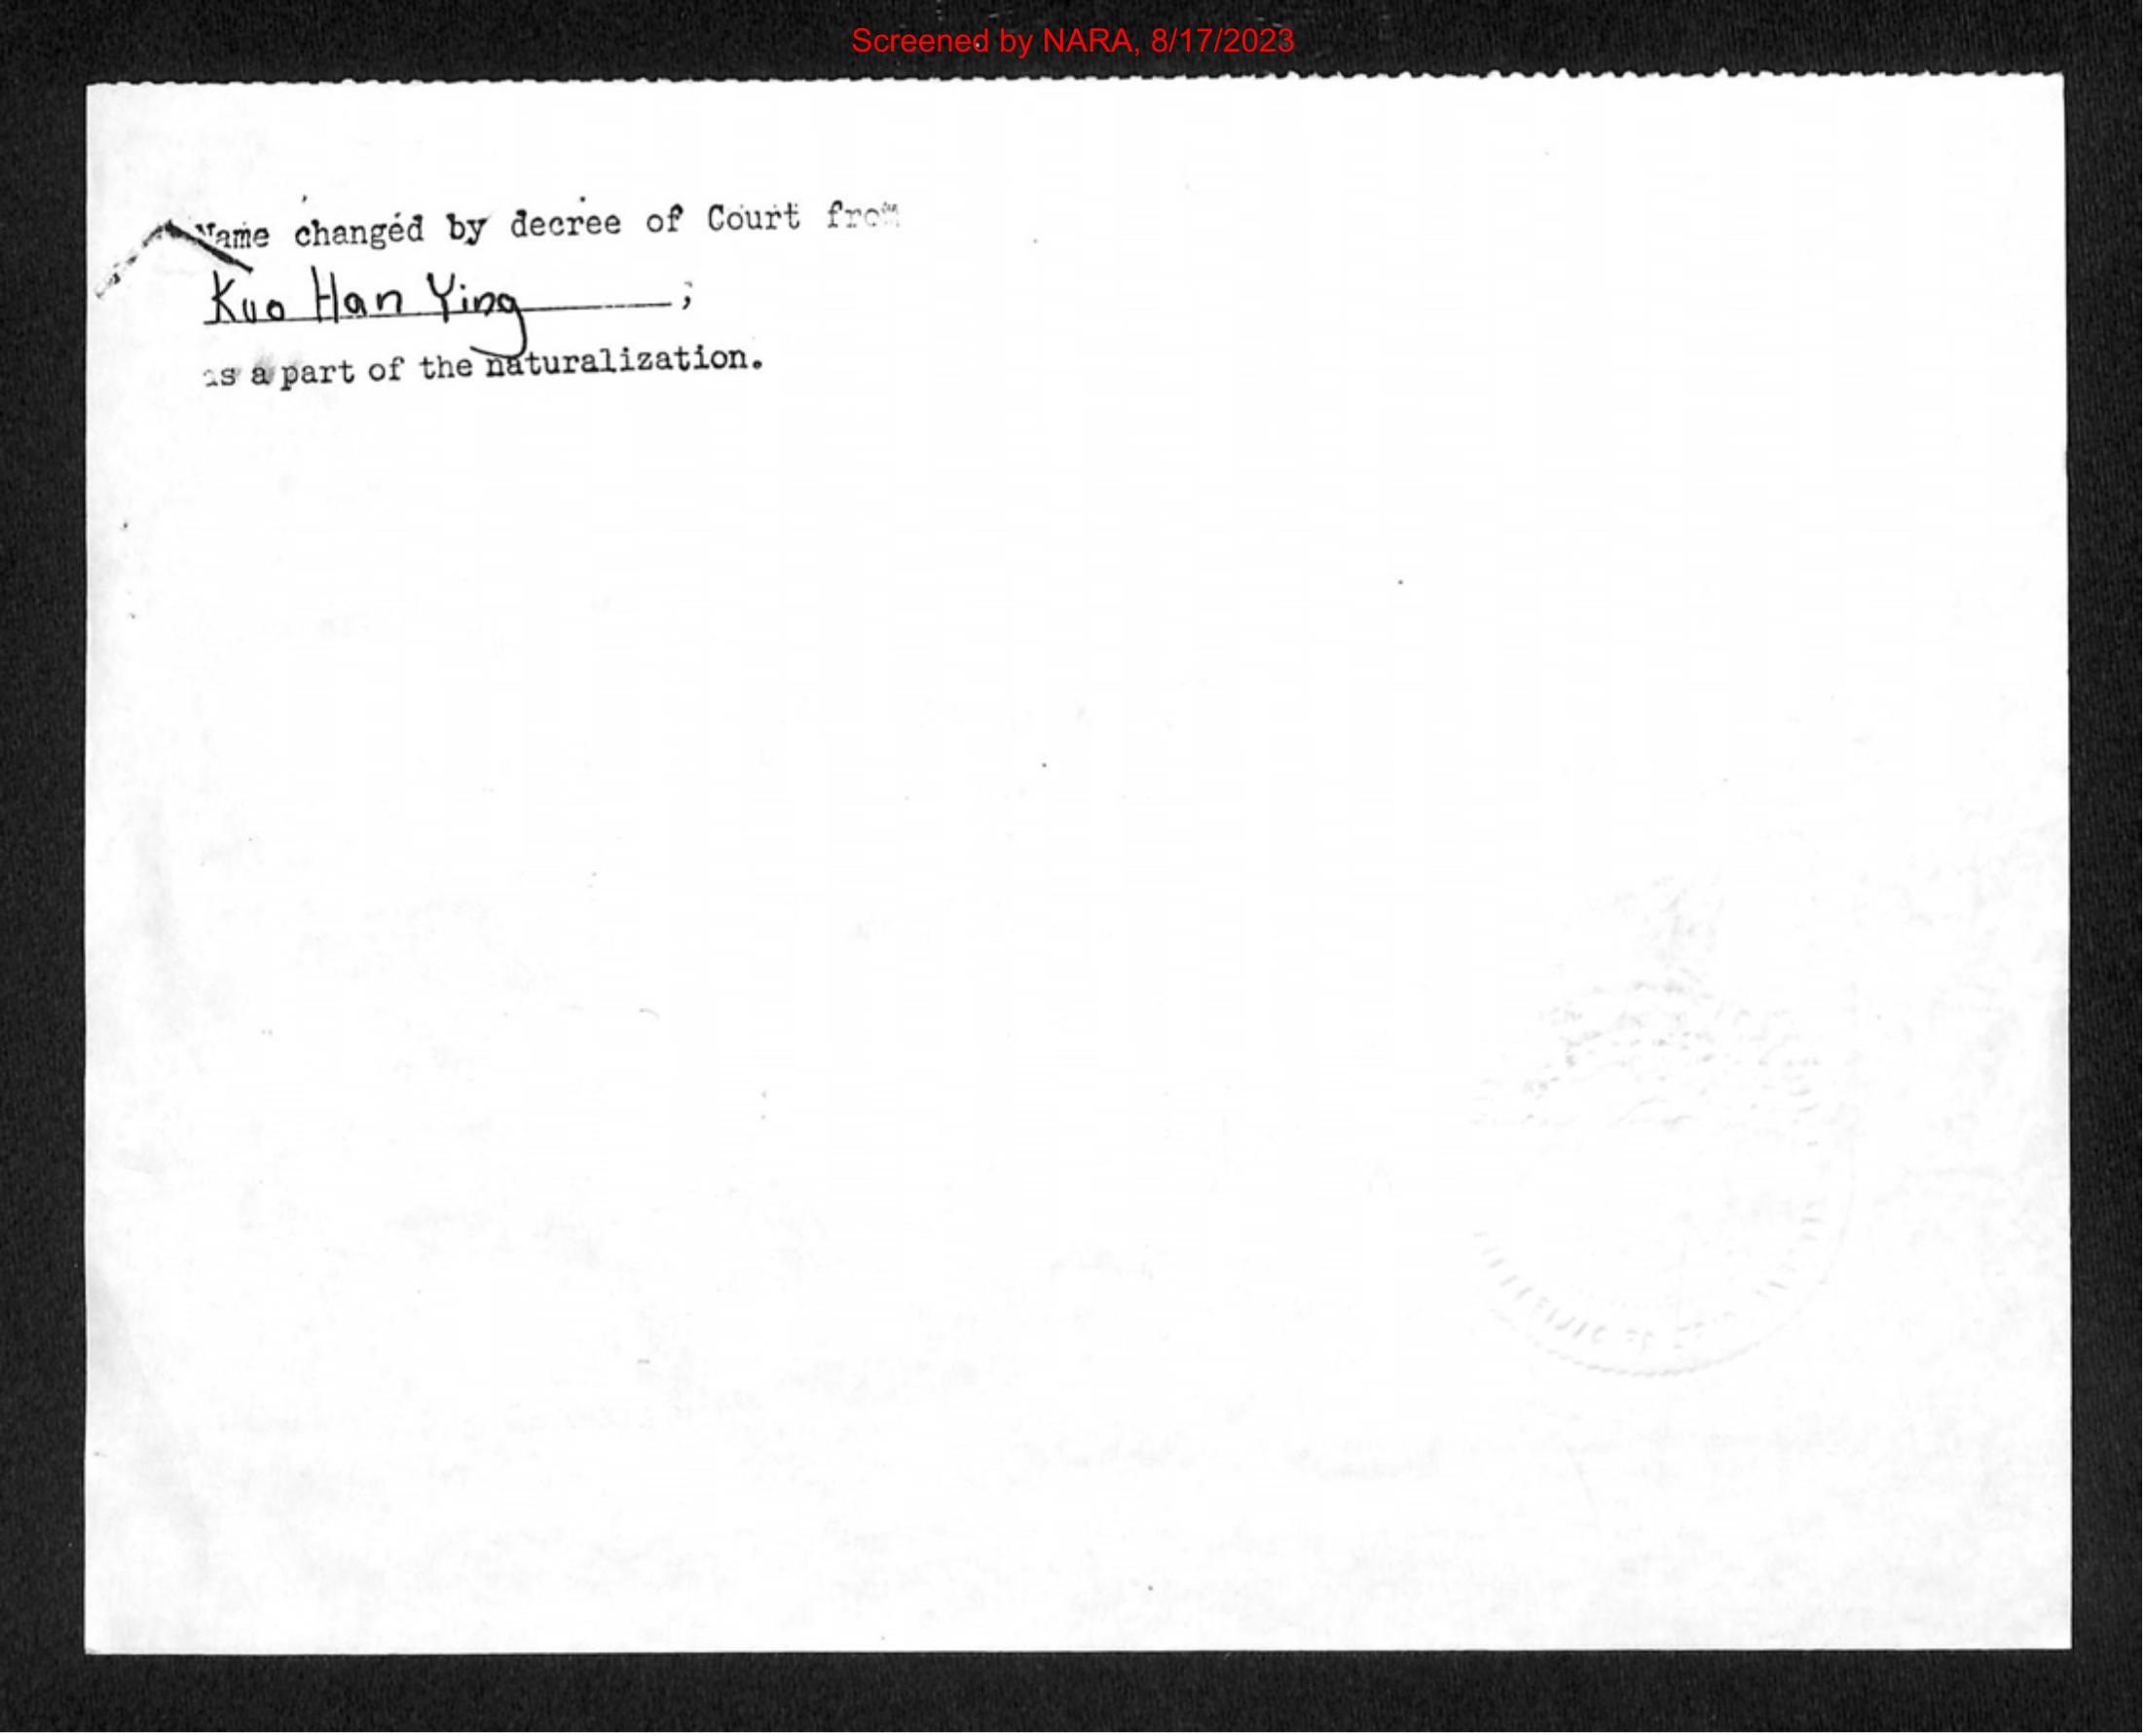 Screened by NARA, 8/17/2023
Name changed by decree of Court from
Kuo Han Ying ;
as a part of the naturalization.